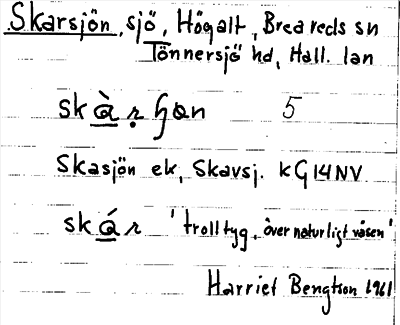 Skarsjön, sjö, Högalt, Breareds sn
Tönnersjö hd, Hall. län
5
Skasjön ek, Skavsj. KG 14 NV
'trolltyg, övernaturligt väsen'
Harriet Bengtson 1961